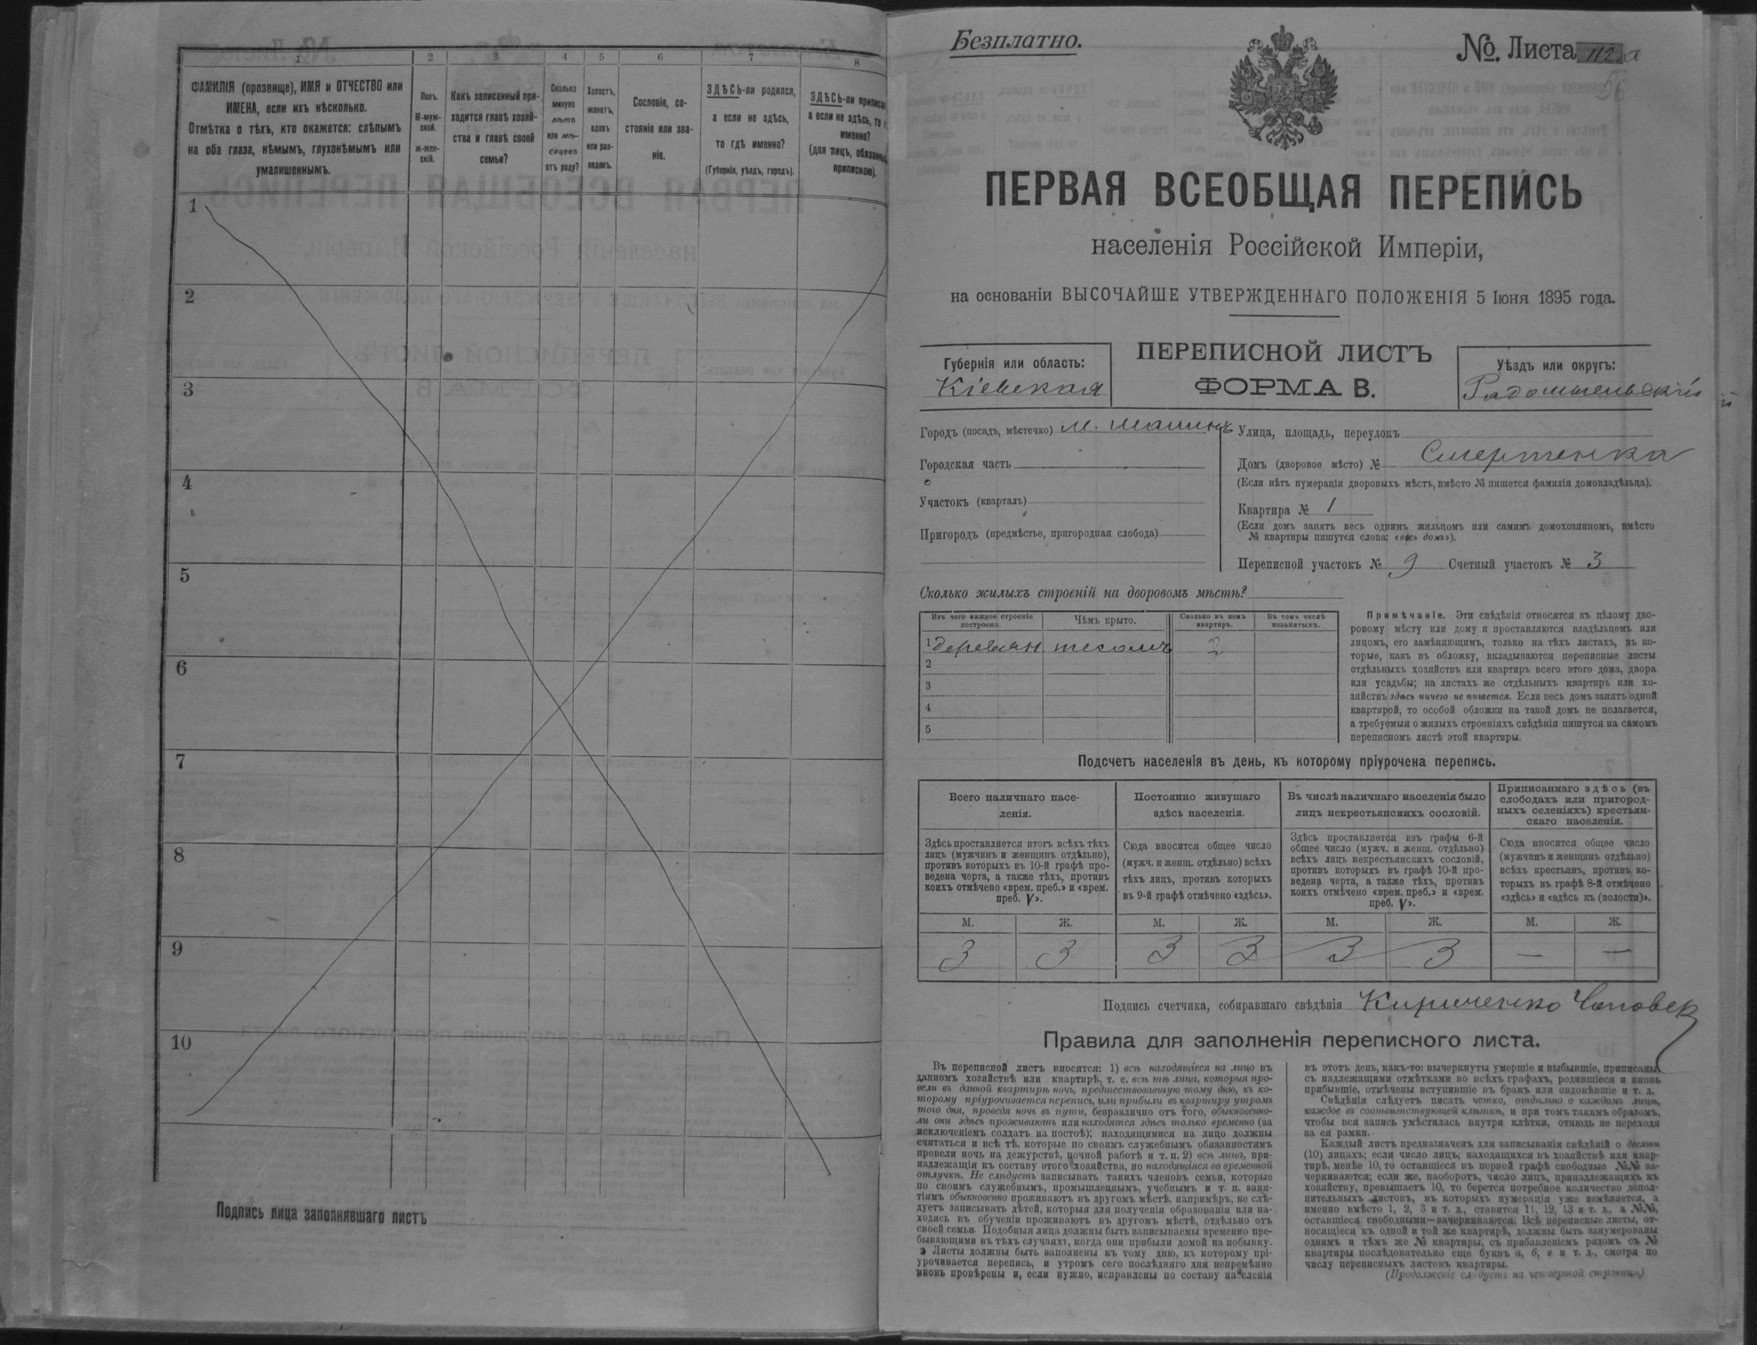 1 2 3 4 5 6 7 8
ФАМИЛІЯ (прозвище), ИМЯ и ОТЧЕСТВО или
ИМЕНА, если ихъ нѣсколько.
Отмѣтка о тѣхъ, кто окажется: слѣпымъ
на оба глаза, нѣмымъ, глухонѣмымъ или
умалишеннымъ.
Полъ.
М-муж-
ской.
Ж-жен-
скій.
Какъ записанный при-
ходится главѣ хозяй-
ства и главѣ своей
семьи?
Сколько
минуло
лѣтъ
или мѣ-
сяцевъ
отъ роду?
Холостъ,
женатъ,
вдовъ
или раз-
веденъ.
Сословіе, со-
стояніе или зва-
ніе.
ЗДѢСЬ-ли родился,
а если не здѣсь,
то гдѣ именно?
(Губернія, уѣздъ, городъ).
ЗДѢСЬ-ли приписа
а если не здѣсь, то г
именно?
(для лицъ, обязанны
припискою).
1
2
3
4
5
6
7
8
9
10
Подпись лица заполнявшаго листъ
Безплатно.
№ Листа 112 а
ПЕРВАЯ ВСЕОБЩАЯ ПЕРЕПИСЬ
населенія Россійской Имперіи,
на основаніи ВЫСОЧАЙШЕ УТВЕРЖДЕННАГО ПОЛОЖЕНІЯ 5 Іюня 1895 года.
Губернія или область:
Кіевская
ПЕРЕПИСНОЙ ЛИСТЪ
ФОРМА В.
Уѣздъ или округъ:
Радомысльскій
Городъ (посадъ, мѣстечко) м. Малинъ
Городская часть
Участокъ (кварталъ)
Пригородъ (предмѣстье, пригородная слобода)
Улица, площадь, переулокъ
Домъ (дворовое мѣсто) № Смертенка
(Если нѣтъ нумераціи дворовыхъ мѣстъ, вмѣсто № пишется фамилія домовладѣльца).
Квартира № 1
(Если домъ занятъ весь однимъ жильцомъ или самимъ домохозяиномъ, вмѣсто
№ квартиры пишутся слова: «весь домъ»).
Переписной участокъ № 9 Счетный участокъ № 3
Сколько жилыхъ строеній на дворовомъ мѣстѣ?
Изъ чего каждое строеніе
построено.
Чѣмъ крыто.
Сколько въ немъ
квартиръ.
Въ томъ числѣ
незанятыхъ.
1 деревян тесомъ 2
2
3
4
5
Примѣчаніе. Эти свѣдѣнія относятся къ цѣлому дво-
ровому мѣсту или дому и проставляются владѣльцемъ или
лицомъ, его замѣняющимъ, только на тѣхъ листахъ, въ ко-
торые, какъ въ обложку, вкладываются переписные листы
отдѣльныхъ хозяйствъ или квартиръ всего этого дома, двора
или усадьбы; на листахъ же отдѣльныхъ квартиръ или хо-
зяйствъ здѣсь ничего не пишется. Если весь домъ занятъ одной
квартирой, то особой обложки на такой домъ не полагается,
а требуемыя о жилыхъ строеніяхъ свѣдѣнія пишутся на самомъ
переписномъ листѣ этой квартиры.
Подсчетъ населенія въ день, къ которому пріурочена перепись.
Всего наличнаго насе-
ленія.
Здѣсь проставляется итогъ всѣхъ тѣхъ
лицъ (мужчинъ и женщинъ отдѣльно),
противъ которыхъ въ 10-й графѣ про-
ведена черта, а также тѣхъ, противъ
коихъ отмѣчено «врем. преб.» и «врем.
преб. V».
Постоянно живущаго
здѣсь населенія.
Сюда вносится общее число
(мужч. и женщ. отдѣльно) всѣхъ
тѣхъ лицъ, противъ которыхъ
въ 9-й графѣ отмѣчено «здѣсь».
Въ числѣ наличнаго населенія было
лицъ некрестьянскихъ сословій.
Здѣсь проставляется изъ графы 6-й
общее число (мужч. и женщ. отдѣльно)
всѣхъ лицъ некрестьянскихъ сословій,
противъ которыхъ въ графѣ 10-й про-
ведена черта, а также тѣхъ, противъ
коихъ отмѣчено «врем. преб.» и «врем.
преб. V».
Приписаннаго здѣсь (въ
слободахъ или пригород-
ныхъ селеніяхъ) крестьян-
скаго населенія.
Сюда вносится общее число
(мужчинъ и женщинъ отдѣльно)
всѣхъ крестьянъ, противъ ко-
торыхъ въ графѣ 8-й отмѣчено
«здѣсь» и «здѣсь къ (волости)».
М. Ж. М. Ж. М. Ж. М. Ж.
3 3 3 3 3 3 — —
Подпись счетчика, собиравшаго свѣдѣнія Кириченко
Правила для заполненія переписного листа.
Въ переписной листъ вносятся: 1) всѣ находящіеся на лицо въ
данномъ хозяйствѣ или квартирѣ, т. е. всѣ тѣ лица, которыя про-
вели въ данной квартирѣ ночь, предшествовавшую тому дню, къ ко-
торому пріурочивается перепись, или прибыли въ квартиру утромъ
того дня, проведя ночь въ пути, безразлично отъ того, обыкновенно-
ли они здѣсь проживаютъ или находятся здѣсь только временно (за
исключеніемъ солдатъ на постоѣ); находящимися на лицо должны
считаться и всѣ тѣ, которые по своимъ служебнымъ обязанностямъ
провели ночь на дежурствѣ, ночной работѣ и т. п. 2) всѣ лица, при-
надлежащія къ составу этого хозяйства, но находящіяся во временной
отлучкѣ. Не слѣдуетъ записывать такихъ членовъ семьи, которые
по своимъ служебнымъ, промышленнымъ, учебнымъ и т. п. заня-
тіямъ обыкновенно проживаютъ въ другомъ мѣстѣ, напримѣръ, не слѣ-
дуетъ записывать дѣтей, которыя для полученія образованія или на-
ходясь въ обученіи проживаютъ въ другомъ мѣстѣ, отдѣльно отъ
своей семьи. Подобныя лица должны быть записываемы временно пре-
бывающими въ тѣхъ случаяхъ, когда они прибыли домой на побывку.
Листы должны быть заполнены къ тому дню, къ которому прі-
урочивается перепись, и утромъ сего послѣдняго дня непремѣнно
вновь провѣрены и, если нужно, исправлены по составу населенія
въ этотъ день, какъ-то: вычеркнуты умершіе и выбывшіе, приписаны
съ надлежащими отмѣтками во всѣхъ графахъ, родившіеся и вновь
прибывшіе, отмѣчены вступившіе въ бракъ или овдовѣвшіе и т. д.
Свѣдѣнія слѣдуетъ писать четко, отдѣльно о каждомъ лицѣ,
каждое въ соотвѣтствующей клѣткѣ, и при томъ такимъ образомъ,
чтобы вся запись умѣстилась внутри клѣтки, отнюдь не переходя
за ея рамки.
Каждый листъ предназначенъ для записыванія свѣдѣній о десяти
(10) лицахъ; если число лицъ, находящихся въ хозяйствѣ или квар-
тирѣ, менѣе 10, то оставшіеся въ первой графѣ свободные №№ за-
черкиваются; если же, наоборотъ, число лицъ, принадлежащихъ къ
хозяйству, превышаетъ 10, то берется потребное количество допол-
нительныхъ листовъ, въ которыхъ нумерація уже измѣняется, а
именно вмѣсто 1, 2, 3 и т. д., ставится 11, 12, 13 и т. д., а №№,
оставшіеся свободными—зачеркиваются. Всѣ переписные листы, от-
носящіеся къ одной и той же квартирѣ, должны быть занумерованы
однимъ и тѣмъ же № квартиры, съ прибавленіемъ рядомъ съ №
квартиры послѣдовательно еще буквъ а, б, в и т. д., смотря по
числу переписныхъ листовъ квартиры.
(Продолженіе слѣдуетъ на четвертой страницѣ)